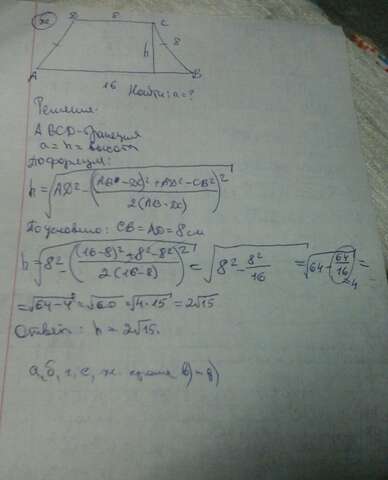 ж
D 8 C
h 8
A B
16 Найти: a = ?
Решение.
ABCD - трапеция
a = h = высота
По формуле:
h = √(AD² - (((AB - DC)² + AD² - CB²) / (2(AB - DC)))²)
По условию: CB = AD = 8 см
h = √(8² - (((16-8)² + 8² - 8²) / (2(16-8)))²) = √(8² - 8²/16) = √(64 - 64/16) =
= √(64 - 4) = √60 = √(4·15) = 2√15
Ответ: h = 2√15.
а, б, г, е, ж